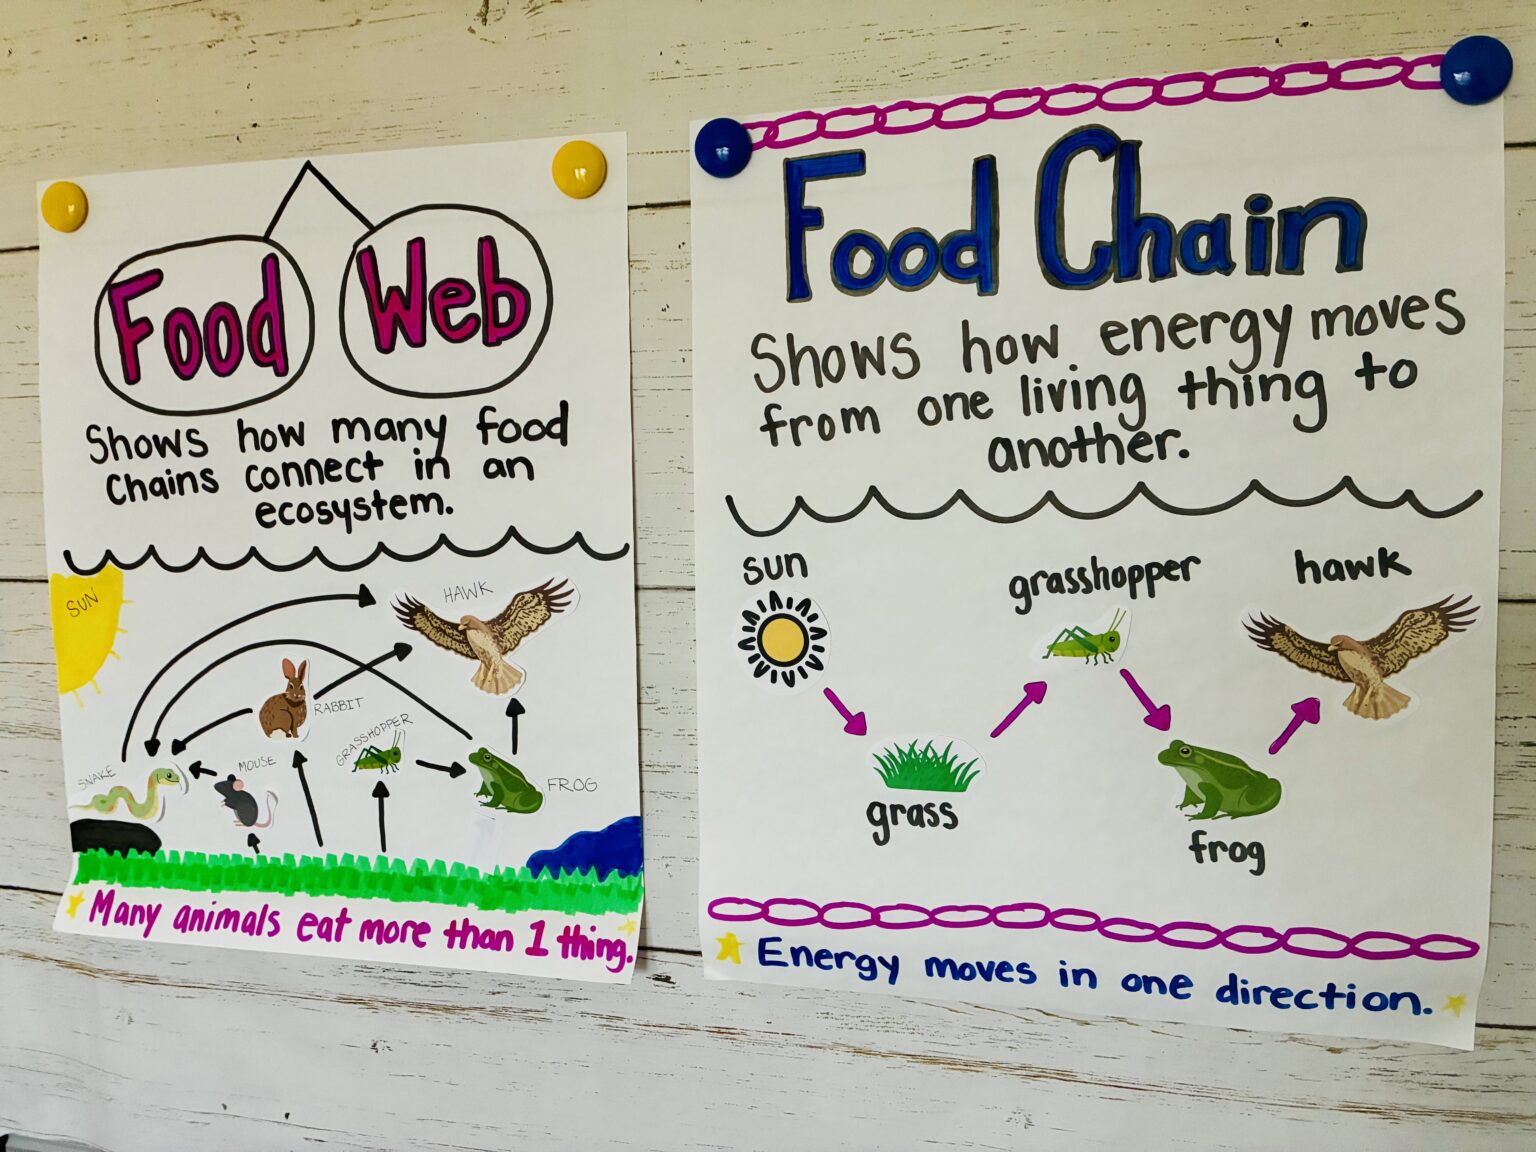 Food Web
Shows how many food
Chains connect in an
ecosystem.
SUN
HAWK
RABBIT
GRASSHOPPER
SNAKE
MOUSE
FROG
Many animals eat more than 1 thing.
Food Chain
Shows how energy moves
from one living thing to
another.
sun
grasshopper
hawk
grass
frog
Energy moves in one direction.